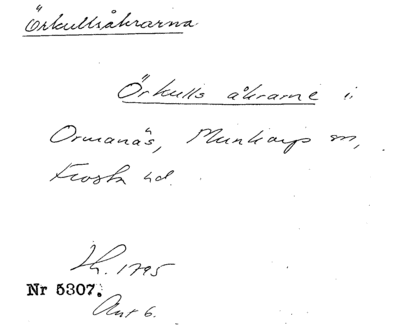 Örkullsåkrarna
Örkulls åkrarne i
Ormanäs, Munkarp sn,
Frosta hd.
Lh. 1795
Nr 5307.
Akt 6.